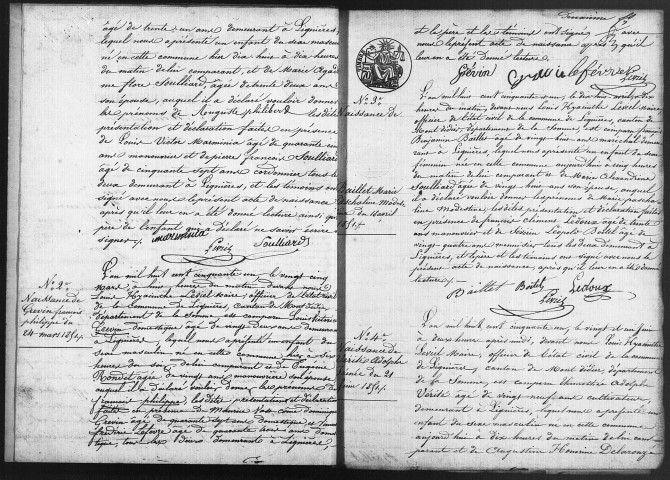 âgé de trente un ans demeurant à Lignières,
lequel nous a présenté un enfant du sexe masculin
né en cette commune hier dix huit à dix heures
du matin de lui comparant, et de Marie
Soulliard, âgée de trente deux ans
son épouse, auquel il a déclaré vouloir donner
les prénoms de Auguste philibert les dites
présentation et déclaration faites en présence
de Louis Victor Marminia âgé de quarante
ans manouvrier et de pierre françois Soulliard
âgé de cinquante sept ans cordonnier tous les
deux demeurant à Lignières, et les témoins ont
signé avec nous le présent acte de naissance
après qu'il leur en a été donné lecture ainsi, que
père de l'enfant qui a déclaré ne savoir écrire
signer
marminia
Leviel Soulliard
N.° 2.e
Naissance de
Grevin françois
philippe du
24 mars 1851.
L'an mil huit cent cinquante un, le vingt cinq
mars à heures du matin devant nous
Louis Hyacinthe Leviel maire, officier de l'état civil
de la commune de Lignières, canton de Montdidier
département de la Somme est comparu Louis
Grevin domestique âgé de vingt deux ans demeurant
à Lignières, lequel nous a présenté un enfant du
sexe masculin né en cette commune hier à
heures du de lui comparant et de Eugénie
âgée de vingt ans son épouse
auquel il a déclaré vouloir donner les prénoms
françois philippe, les dites présentation et déclaration
faites en présence de
Grevin âgé de quarante sept ans domestique et
Lefèvre âgé de quarante ans
tous les deux demeurant à Lignières,
Deuxième
et le père et les témoins ont signé avec
nous le présent acte de naissance après qu'il
leur en a été donné lecture.
Grévin lefèvre
Leviel
N.° 3.e
Naissance de
Baillet Marie
Pascaline Modes-
tine du 18 avril
1851.
L'an mil huit cent cinquante un, le dix huit avril
heures du matin, devant nous Louis Hyacinthe Leviel maire,
officier de l'état civil de la commune de Lignières, canton de
Mont didier, département de la Somme, est comparu françois
Benjamin Baillet âgé de vingt huit ans maréchal demeu-
rant à Lignières, lequel nous a présenté un enfant du sexe
féminin née en cette commune aujourd'hui à cinq heures
du matin de lui comparant et de Marie Alexandrine
Soulliard âgée de vingt huit ans son épouse, auquel
il a déclaré vouloir donner les prénoms de Marie pascaline
Modestine, les dites présentation et déclaration faites
en présence de Clément Ledoux âgé de trente
ans manouvrier et de Sévérin Léopold Botel âgé de
vingt quatre ans menuisier tous les deux demeurant à
Lignières, et le père et les témoins ont signé avec nous le
présent acte de naissance, après qu'il leur en a été donné
lecture.
Baillet Botel Ledoux
Leviel
N.° 4.e
Naissance de
Vérité Adolphe
du 21
Juin 1851.
L'an mil huit cent cinquante un, le vingt et un juin
à deux heures après midi, devant nous Louis Hyacinthe
Leviel Maire, officier de l'état civil de la commune
de Lignières, canton de Mont didier, département
de la Somme, est comparu Adolphe
Vérité âgé de vingt neuf ans cultivateur,
demeurant à Lignières, lequel nous a présenté
enfant du sexe masculin né en cette commune
aujourd'hui à dix heures du matin de lui com-
parant et de Augustine Honorine Delarouzé